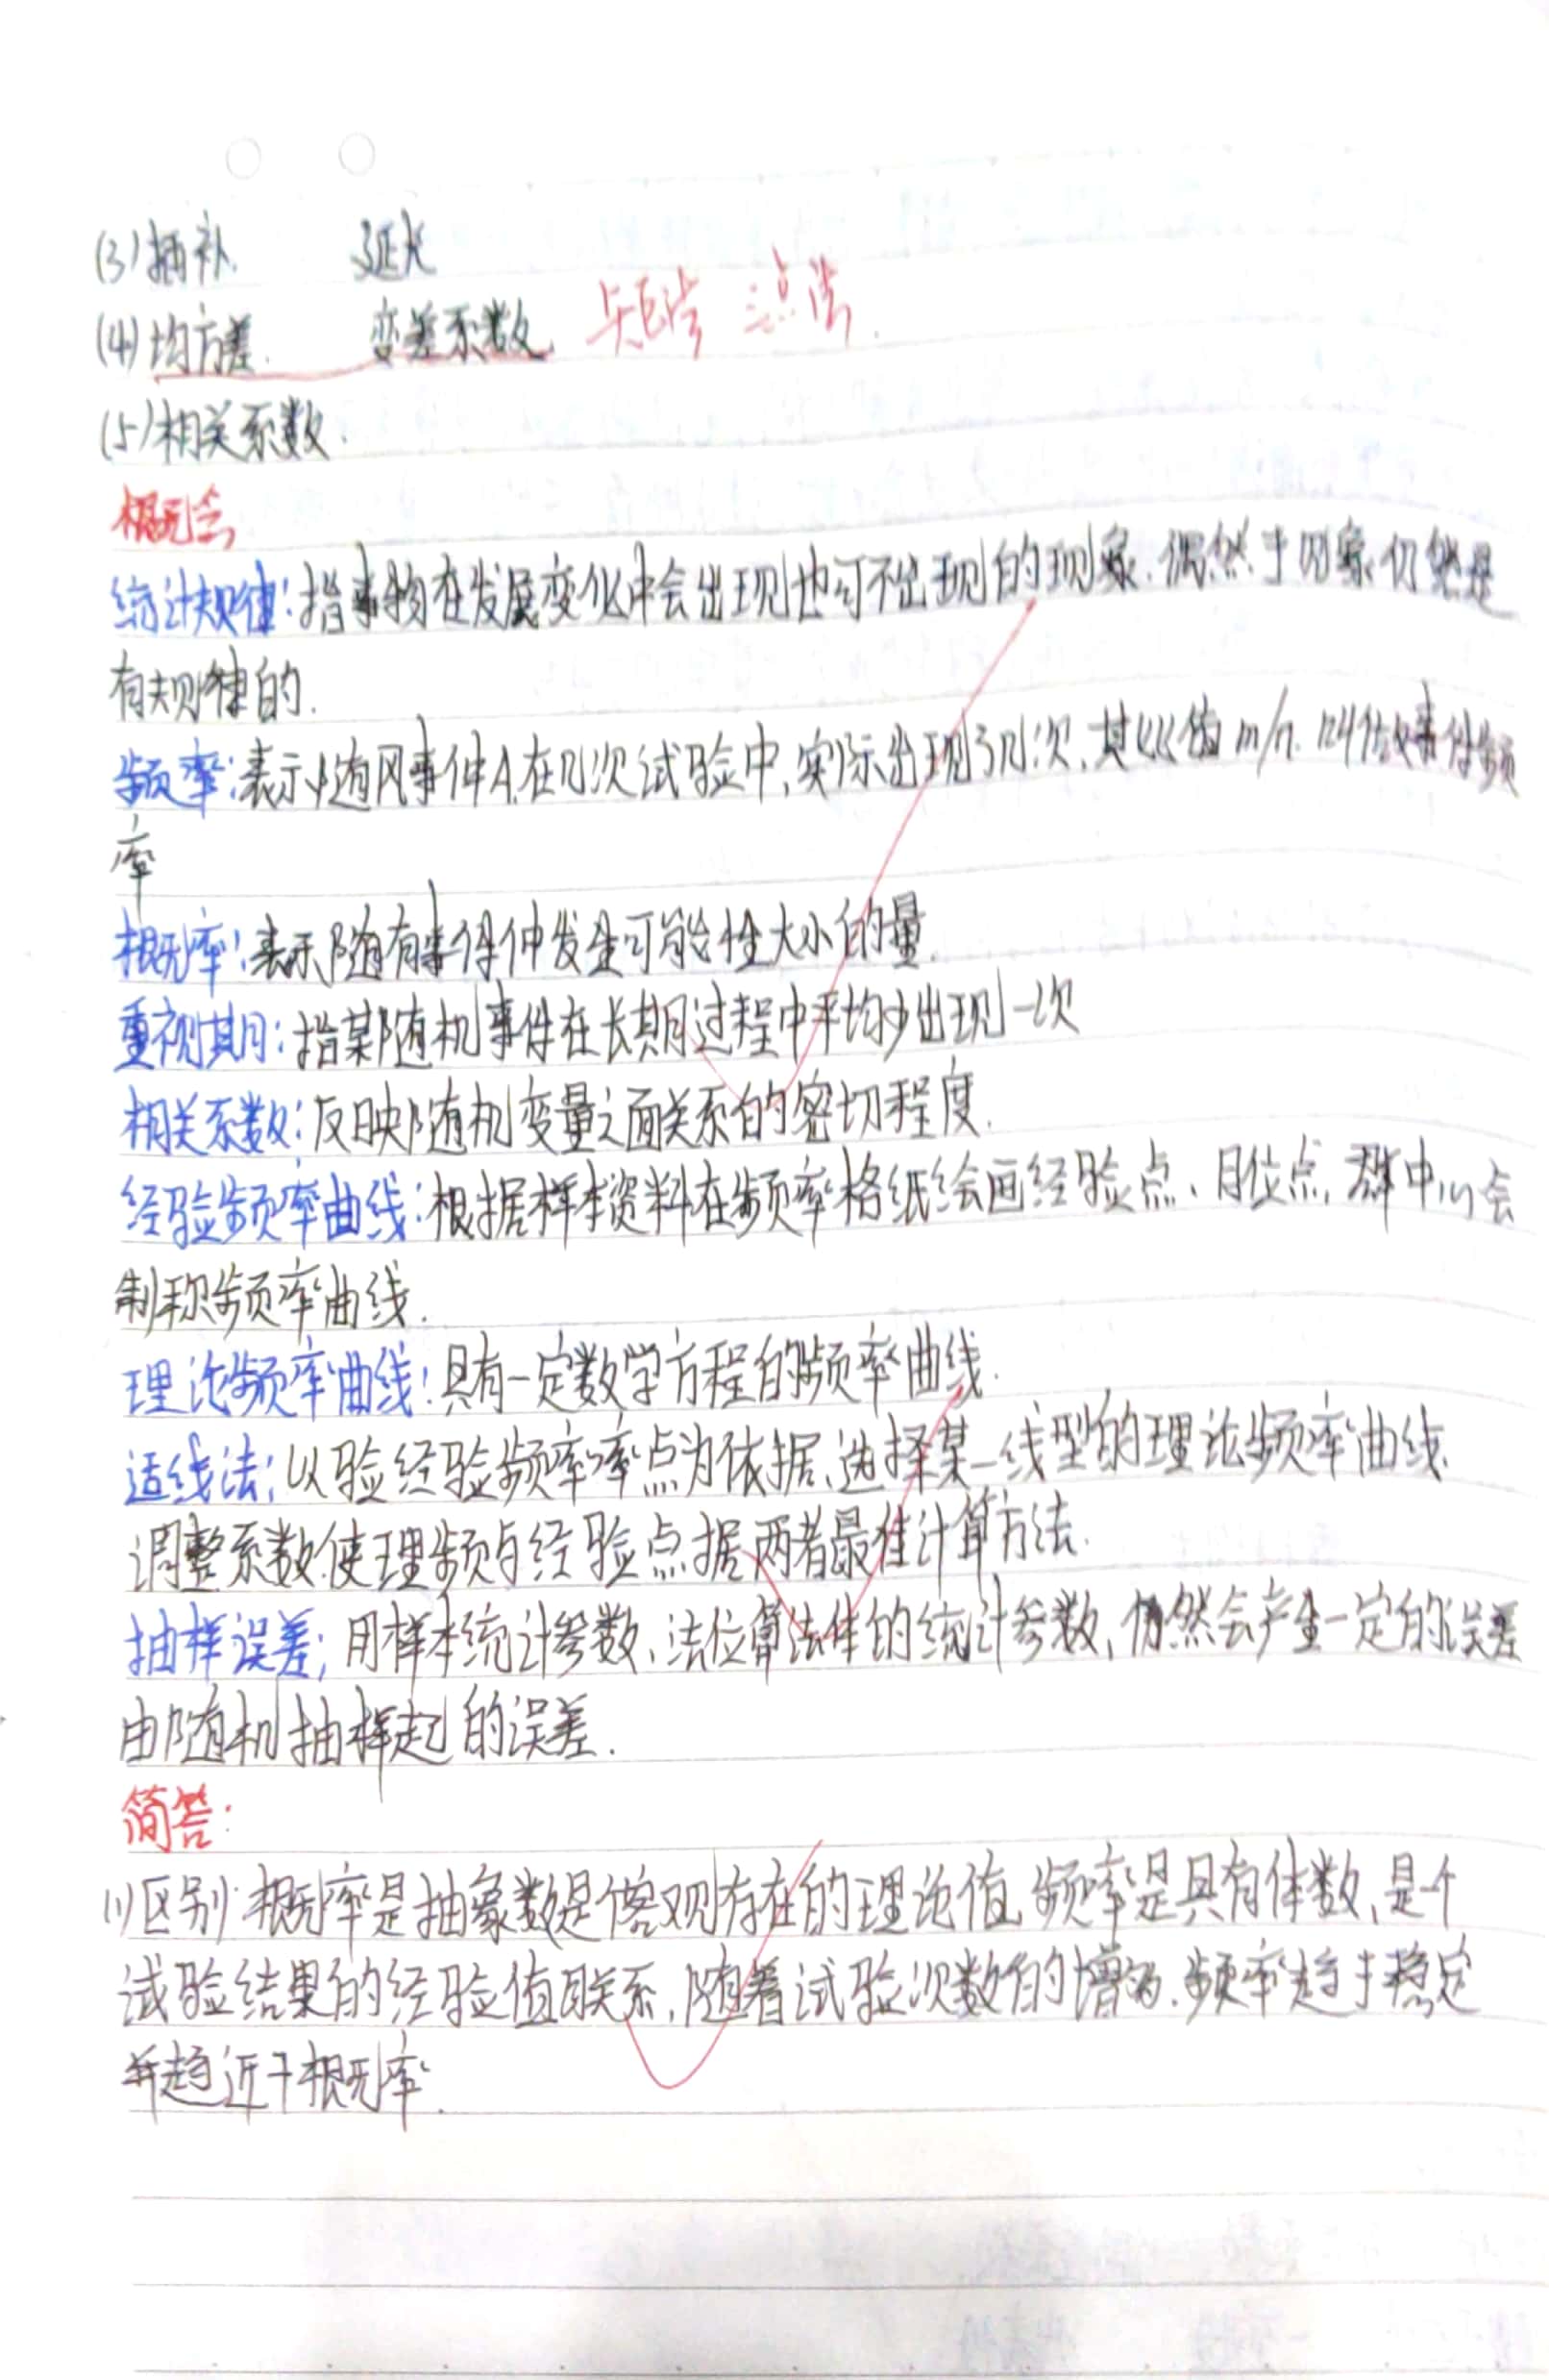 (3)插补 延长
(4)均方差 变差系数 矩法 三点法
(5)相关系数.
概念
统计规律:指事物在发展变化中会出现也可不出现的现象.偶然于因象仍然是
有规律的.
频率:表示随风事件A.在几次试验中,实际出现了几次,其比值m/n.叫做事件频
率
概率:表示随有事件仲发生可能性大小的量.
重视期:指某随机事件在长期过程中平均少出现一次
相关系数:反映随机变量之面关系的密切程度.
经验频率曲线:根据样本资料在频率格纸绘画经验点、目位点,群中心会
制称频率曲线.
理论频率曲线:具有一定数学方程的频率曲线.
适线法:以验经验频率率点为依据,选择某一线型的理论频率曲线,
调整系数使理频与经验点据两者最佳计算方法.
抽样误差:用样本统计参数、法位算法体的统计参数,仍然会产生一定的误差
由随机抽样起的误差.
简答:
(1)区别:概率是抽象数是个客观存在的理论值,频率是具有体数,是个
试验结果的经验值联系,随着试验次数的增多.频率趋于稳定
并趋近于概率.